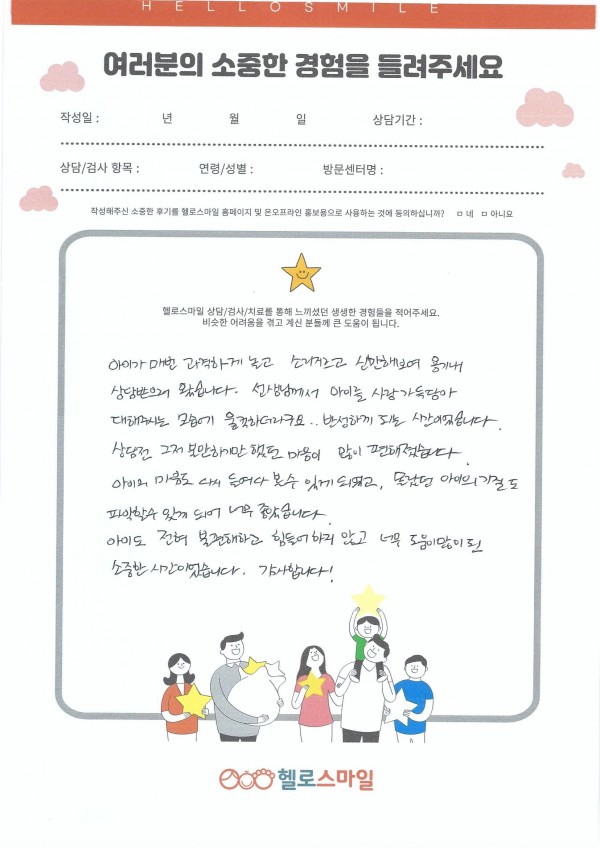 HELLOSMILE
여러분의 소중한 경험을 들려주세요
작성일 : 년 월 일 상담기간 :
상담/검사 항목 : 연령/성별 : 방문센터명 :
작성해주신 소중한 후기를 헬로스마일 홈페이지 및 온오프라인 홍보용으로 사용하는 것에 동의하십니까? ㅁ 네 ㅁ 아니요
헬로스마일 상담/검사/치료를 통해 느끼셨던 생생한 경험들을 적어주세요.
비슷한 어려움을 겪고 계신 분들께 큰 도움이 됩니다.
아이가 매번 과격하게 놀고 소리지르고 산만해보여 용기내
상담받으러 왔습니다. 선생님께서 아이를 사랑 가득담아
대해주시는 모습에 울컥하더라구요.. 반성하게 되는 시간이었습니다.
상담전 그저 불안하기만 했던 마음이 많이 편해졌습니다.
아이의 마음도 다시 들여다 볼수 있게 되었고, 몰랐던 아이의 기질도
파악할수 있게 되어 너무 좋았습니다.
아이도 전혀 불편해하고 힘들어하지 않고 너무 도움이많이 된
소중한 시간이었습니다. 감사합니다!
헬로스마일